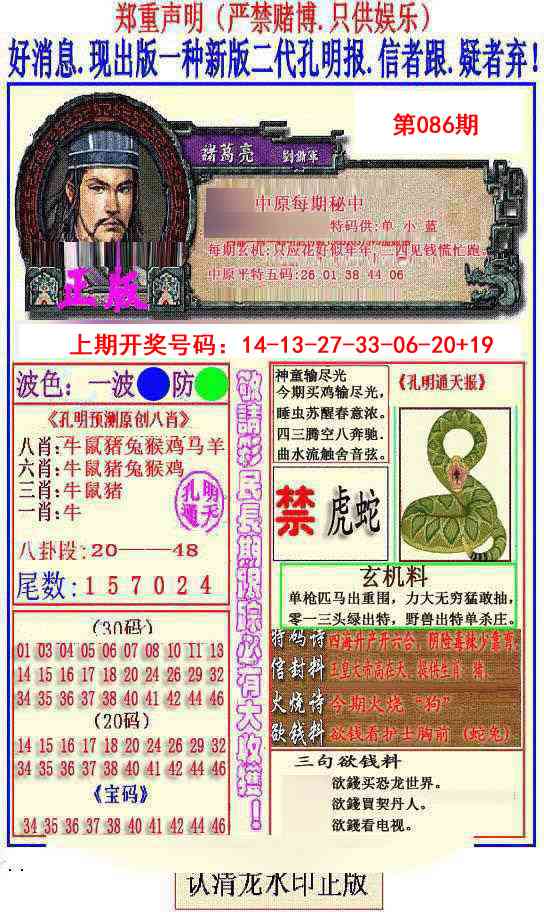 郑重声明（严禁赌博.只供娱乐）
好消息.现出版一种新版二代孔明报.信者跟.疑者弃!
第086期
諸葛亮 劉備軍
中原每期秘中
特码供:单 小 蓝
每期玄机:只应花好似年年,二四见钱慌忙跑.
中原平特五码:26 01 38 44 06
正版
上期开奖号码：14-13-27-33-06-20+19
波色：一波 防
《孔明预测原创八肖》
八肖:牛鼠猪兔猴鸡马羊
六肖:牛鼠猪兔猴鸡
三肖:牛鼠猪
一肖:牛
孔明
通天
八卦段:20——48
尾数:157024
(30码)
01 03 04 05 06 07 08 10 11 13
14 15 16 17 18 20 26 29 31 32
34 35 36 37 38 40 42 44 45 46
(20码)
14 15 16 17 18 20 26 29 32
34 35 36 37 38 40 41 42 44 46
《宝码》
34 35 36 37 38 40 41 42 44 46
敬請彩民長期跟踪必有大收獲!
神童输尽光
今期买鸡输尽光，
睡虫苏醒春意浓。
四三腾空八奔驰.
曲水流触舍音弦。
《孔明通天报》
禁 虎蛇
玄机料
单枪匹马出重围，力大无穷猛敢抽，
零一三头绿出特，野兽出特单杀庄。
特码诗 四海升产开六合，阴险毒辣少靠男;
信封料 玉皇大帝高在天。提供生肖：猪、
火烧诗 今期火烧“狗”
欲钱料 欲钱看护士胸前（蛇兔）
三句欲钱料
欲錢买恐龙世界。
欲錢買契丹人。
欲錢看电视。
认清龙水印正版